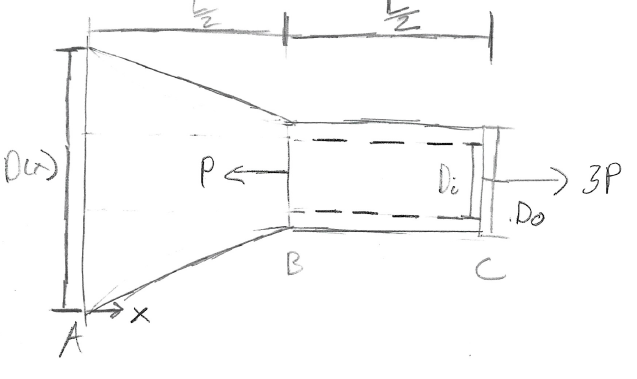 L/2
L/2
D(x)
P
Di
3P
Do
B
C
x
A